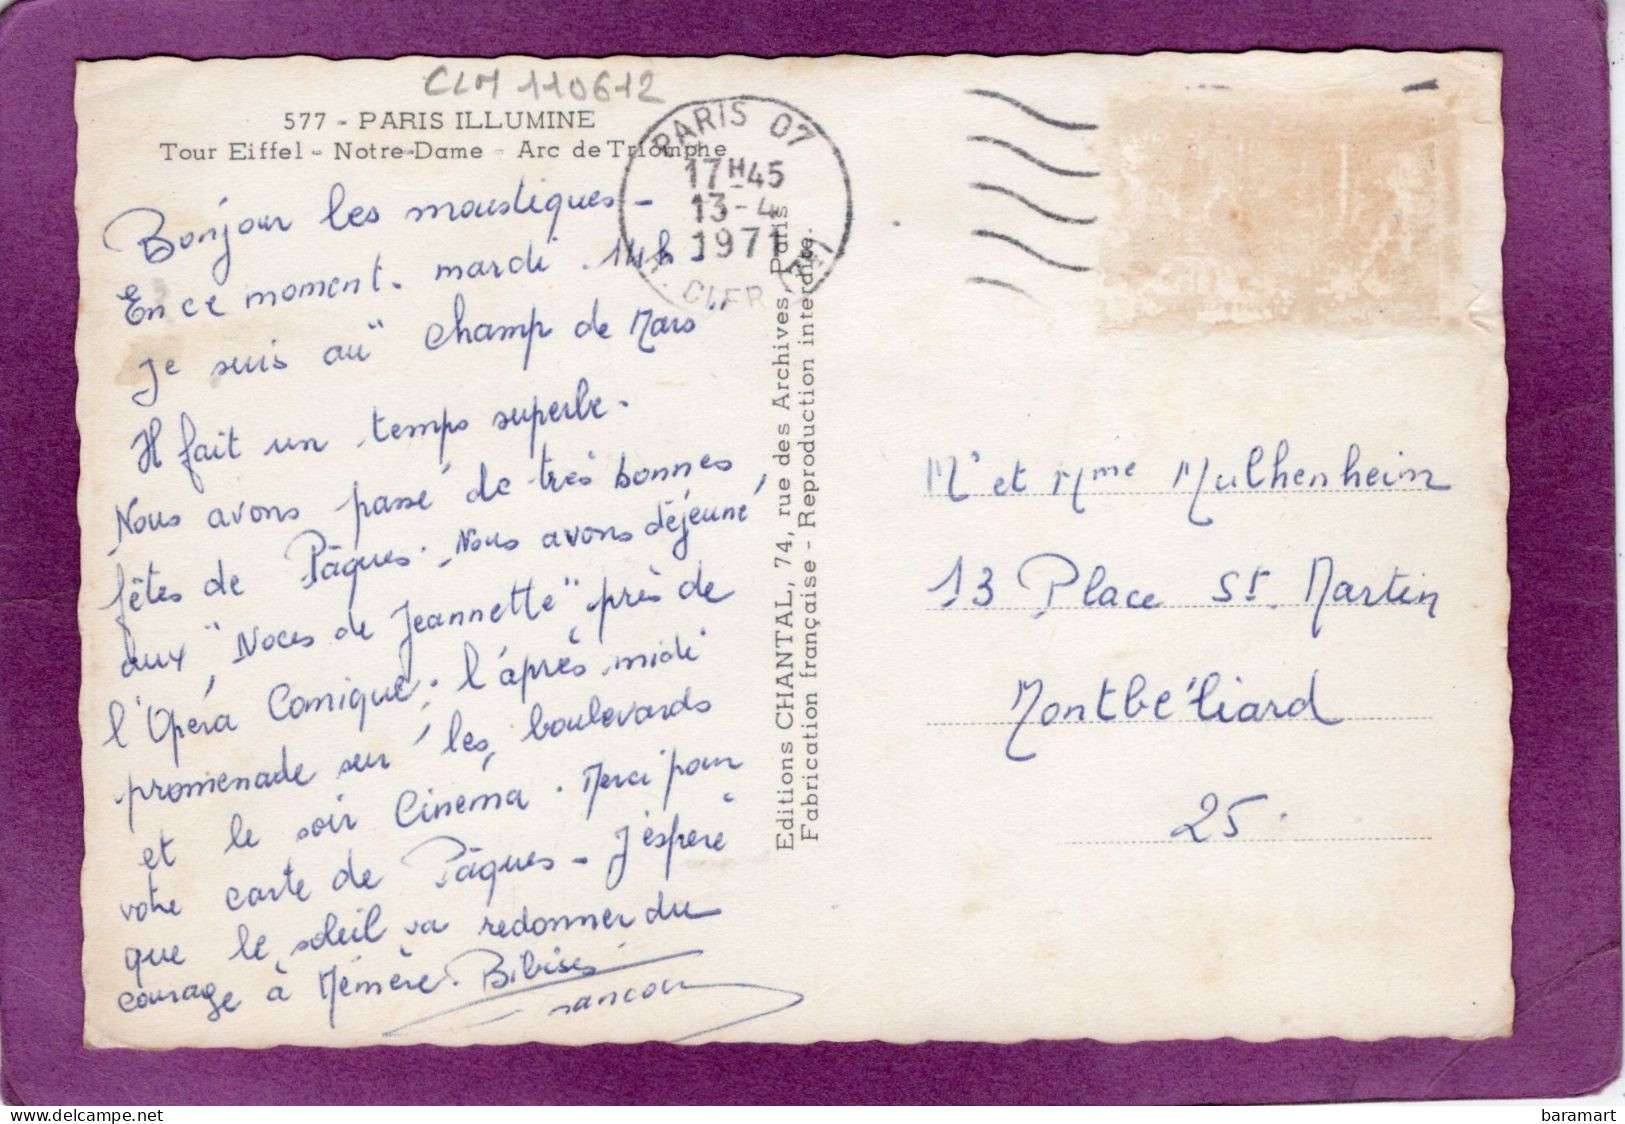 CLM 110612
577 - PARIS ILLUMINE
Tour Eiffel - Notre-Dame - Arc de Triomphe
PARIS 07
17H45
13-4
1971
R. CLER (7E)
Bonjour les moustiques -
En ce moment. mardi. 14h -
Je suis au "Champ de Mars"
Il fait un temps superbe.
Nous avons passé de très bonnes
fêtes de Pâques. Nous avons déjeuné
aux "Noces de Jeannette" près de
l'Opéra Comique. l'après midi
promenade sur les boulevards
et le soir Cinéma. Merci pour
votre carte de Pâques - J'espère
que le soleil va redonner du
courage à Mémère. Bibises
Editions CHANTAL, 74, rue des Archives, Paris
Fabrication française - Reproduction interdite.
Mr et Mme Mulhenheim
13 Place St. Martin
Montbéliard
25.
baramart